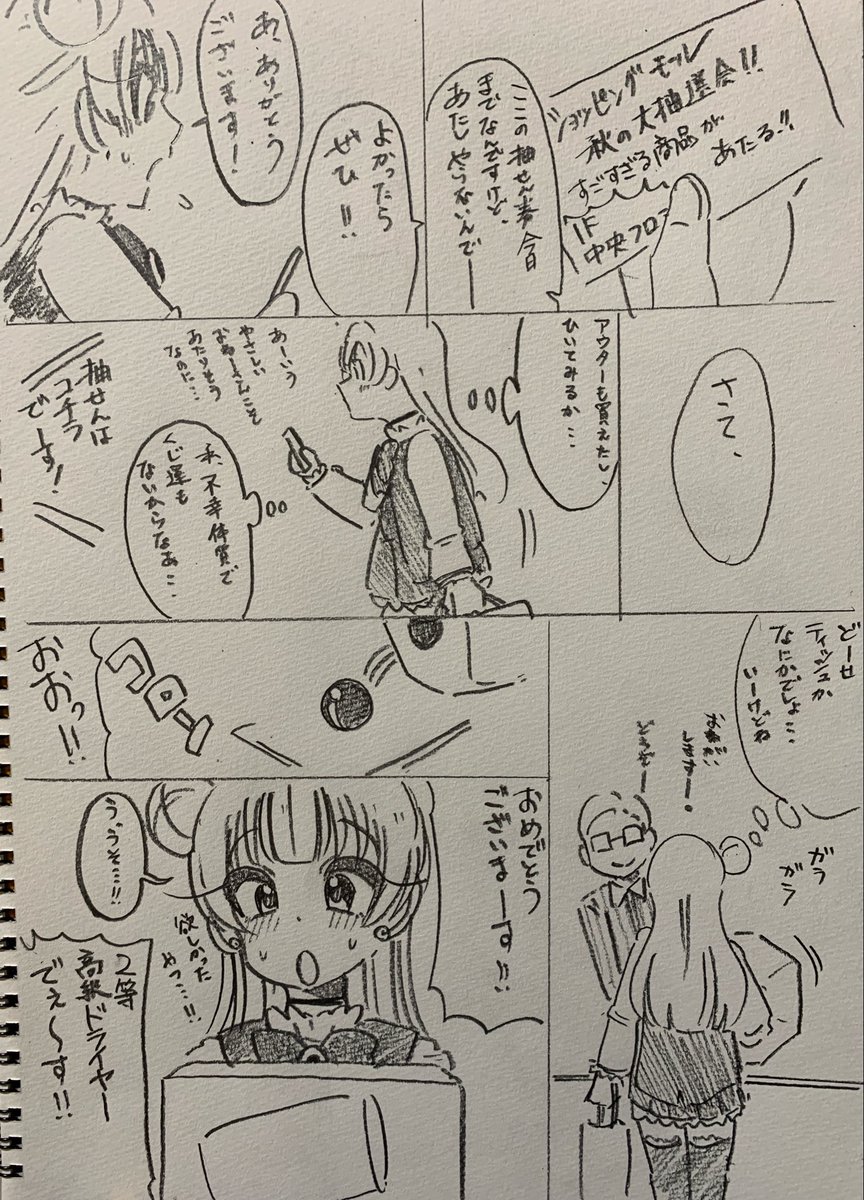 ショッピングモール
秋の大抽選会!!
すごすぎる商品が
あたる!!
1F
中央フロ
ここの抽せん券今日
までなんですけど、
あたしやらないんでーー
よかったら
ぜひ!!
あ、ありがとう
ございます!
さて、
アウターも買えたし、
ひいてみるか…
あーいう
やさしい
おねーさんこそ
あたりそう
なのに…
私、不幸体質で
くじ運も
ないからなぁ…
抽せんは
コチラ
でーす!
どーせ
ティッシュか
なにかでしょ…
いーけどね
どうぞー
ガラ
ガラ
コロー
おおっ!!
おめでとう
ございまーす!!
う、うそ…!!
欲しかった
やつ…!!
2等
高級ドライヤー
でぇ〜す!!